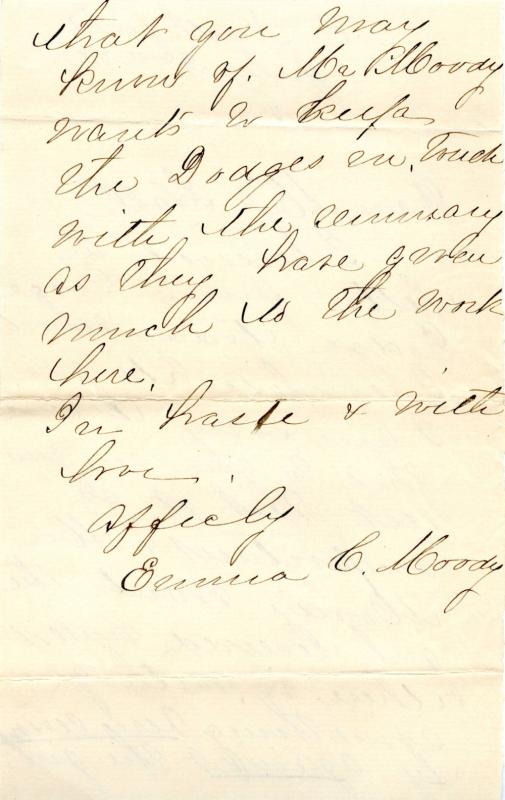 that you may
know of. Mr Moody
wants to keep
the Dodges in touch
with the seminary
as they have given
much to the work
here.
In haste & with
love.
Affecly
Emma C. Moody